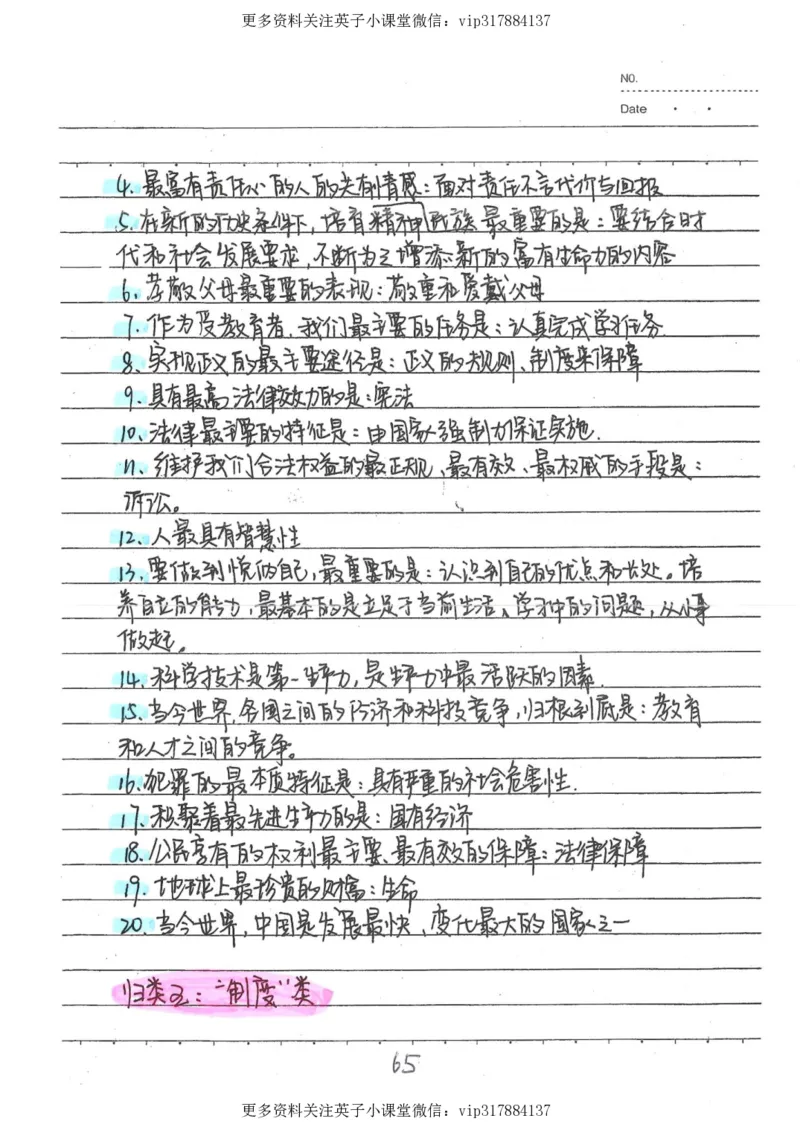 更多资料关注英子小课堂微信：vip317884137
NO.
Date
4、最富有责任心的人的共有情感：面对责任不言代价与回报
5、在新的历史条件下，培育精神民族最重要的是：要结合时
代和社会发展要求，不断为之增添新的富有生命力的内容
6、孝敬父母最重要的表现：敬重和爱戴父母
7、作为受教育者，我们最主要的任务是：认真完成学习任务
8、实现正义的最主要途径是：正义的规则、制度来保障
9、具有最高法律效力的是：宪法
10、法律最主要的特征是：由国家强制力保证实施.
11、维护我们合法权益的最正规、最有效、最权威的手段是：
诉讼。
12、人最具有智慧性
13、要做到悦纳自己，最重要的是：认识到自己的优点和长处。培
养自立的能力，最基本的是立足于当前生活、学习中的问题，从小事
做起。
14、科学技术是第一生产力，是生产力中最活跃的因素.
15、当今世界，各国之间的经济和科技竞争，归根到底是：教育
和人才之间的竞争。
16、犯罪的最本质特征是：具有严重的社会危害性.
17、积聚着最先进生产力的是：国有经济
18、公民享有的权利最主要、最有效的保障：法律保障
19、地球上最珍贵的财富：生命
20、当今世界，中国是发展最快、变化最大的国家之一
归类五：“制度”类
65
更多资料关注英子小课堂微信：vip317884137